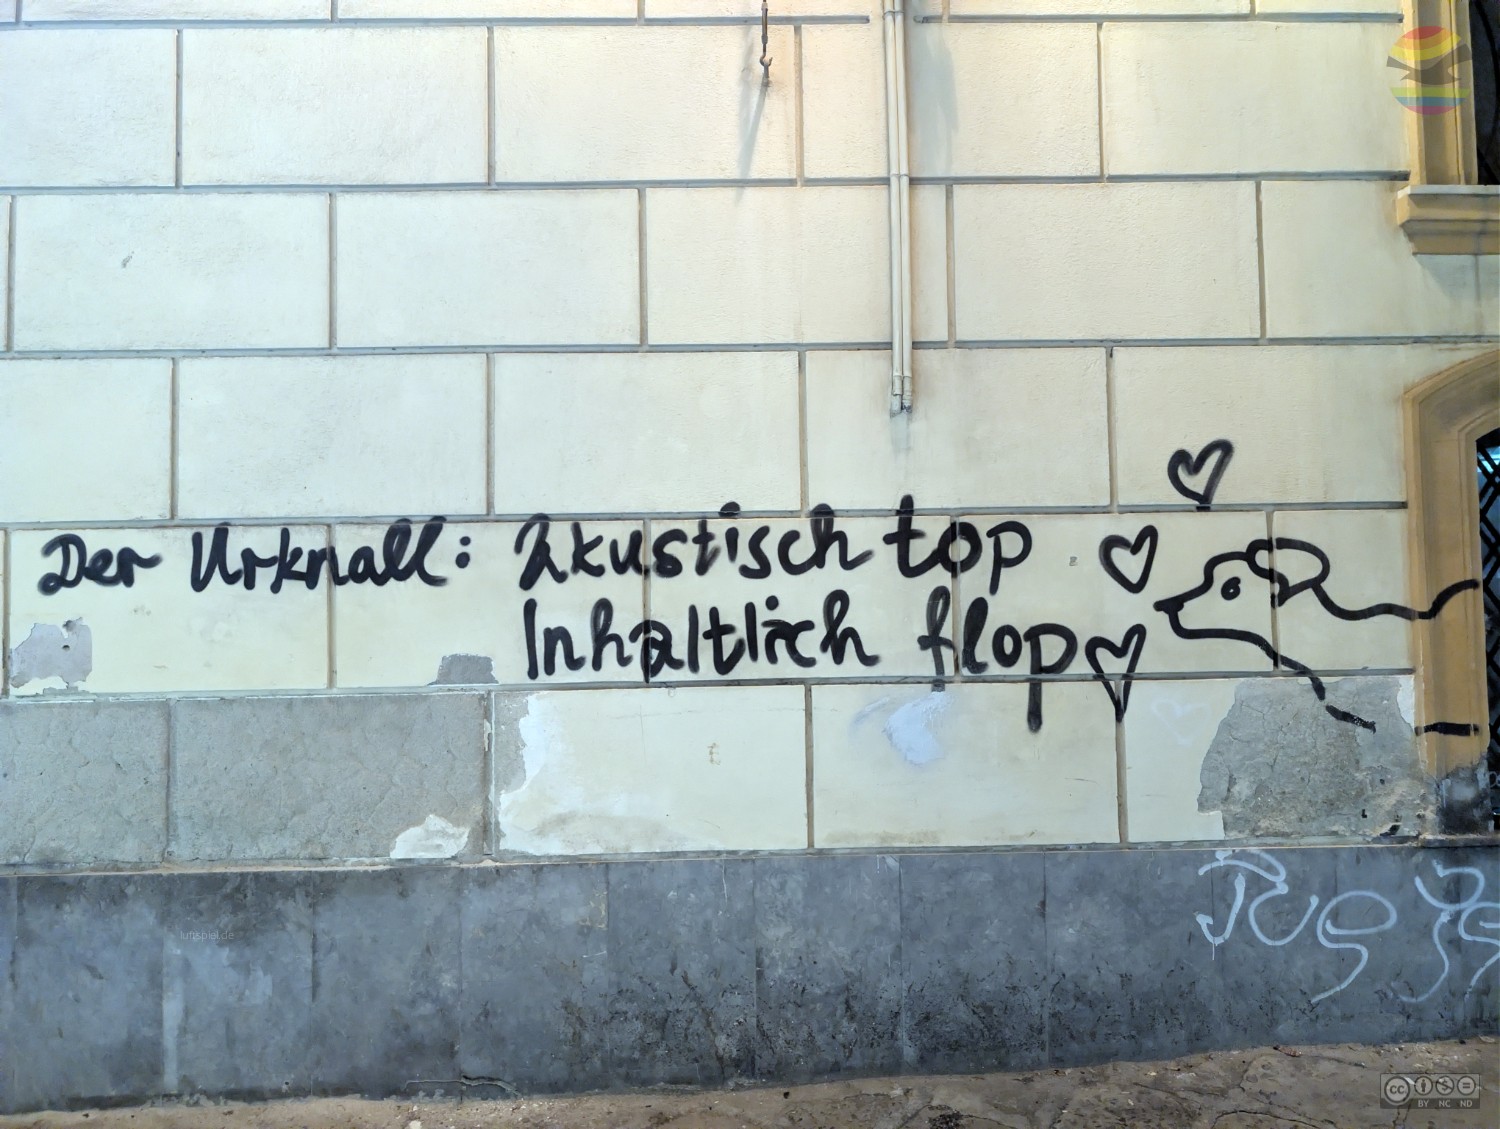 Der Urknall: Akustisch top
Inhaltlich flop
luhspiel.de
CC BY NC ND